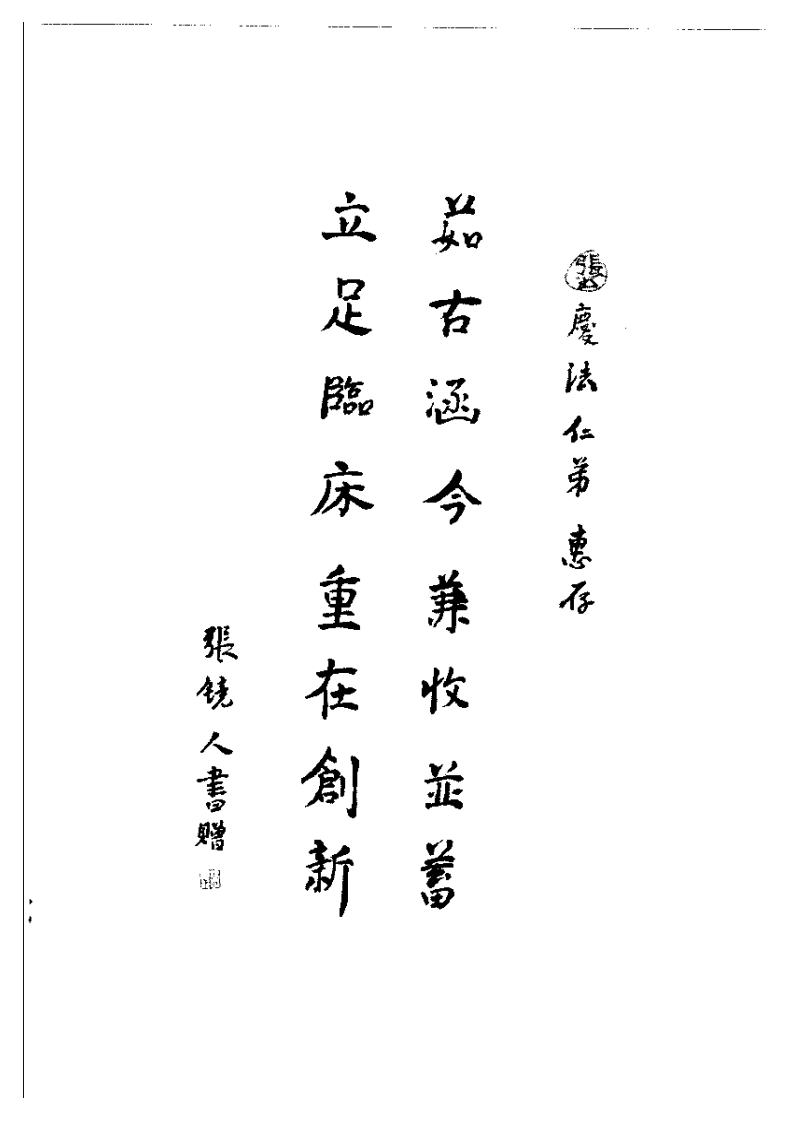 慶法仁弟惠存
茹古涵今兼收並蓄
立足臨床重在創新
張鏡人書贈